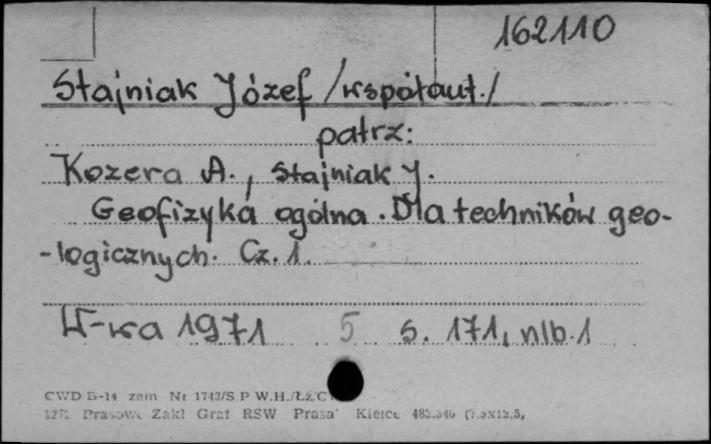 162110
Stajniak Józef /współaut./
patrz:
Kozera A., Stajniak J.
Geofizyka ogólna. Dla techników geo-
-logicznych. Cz. 1.
W-wa 1971 5 s. 171, nlb. 1
CWD B-14 zam Nr 1743/S P W.H./Łż/C
Prasowe Zakł Graf RSW Prasa Kielce